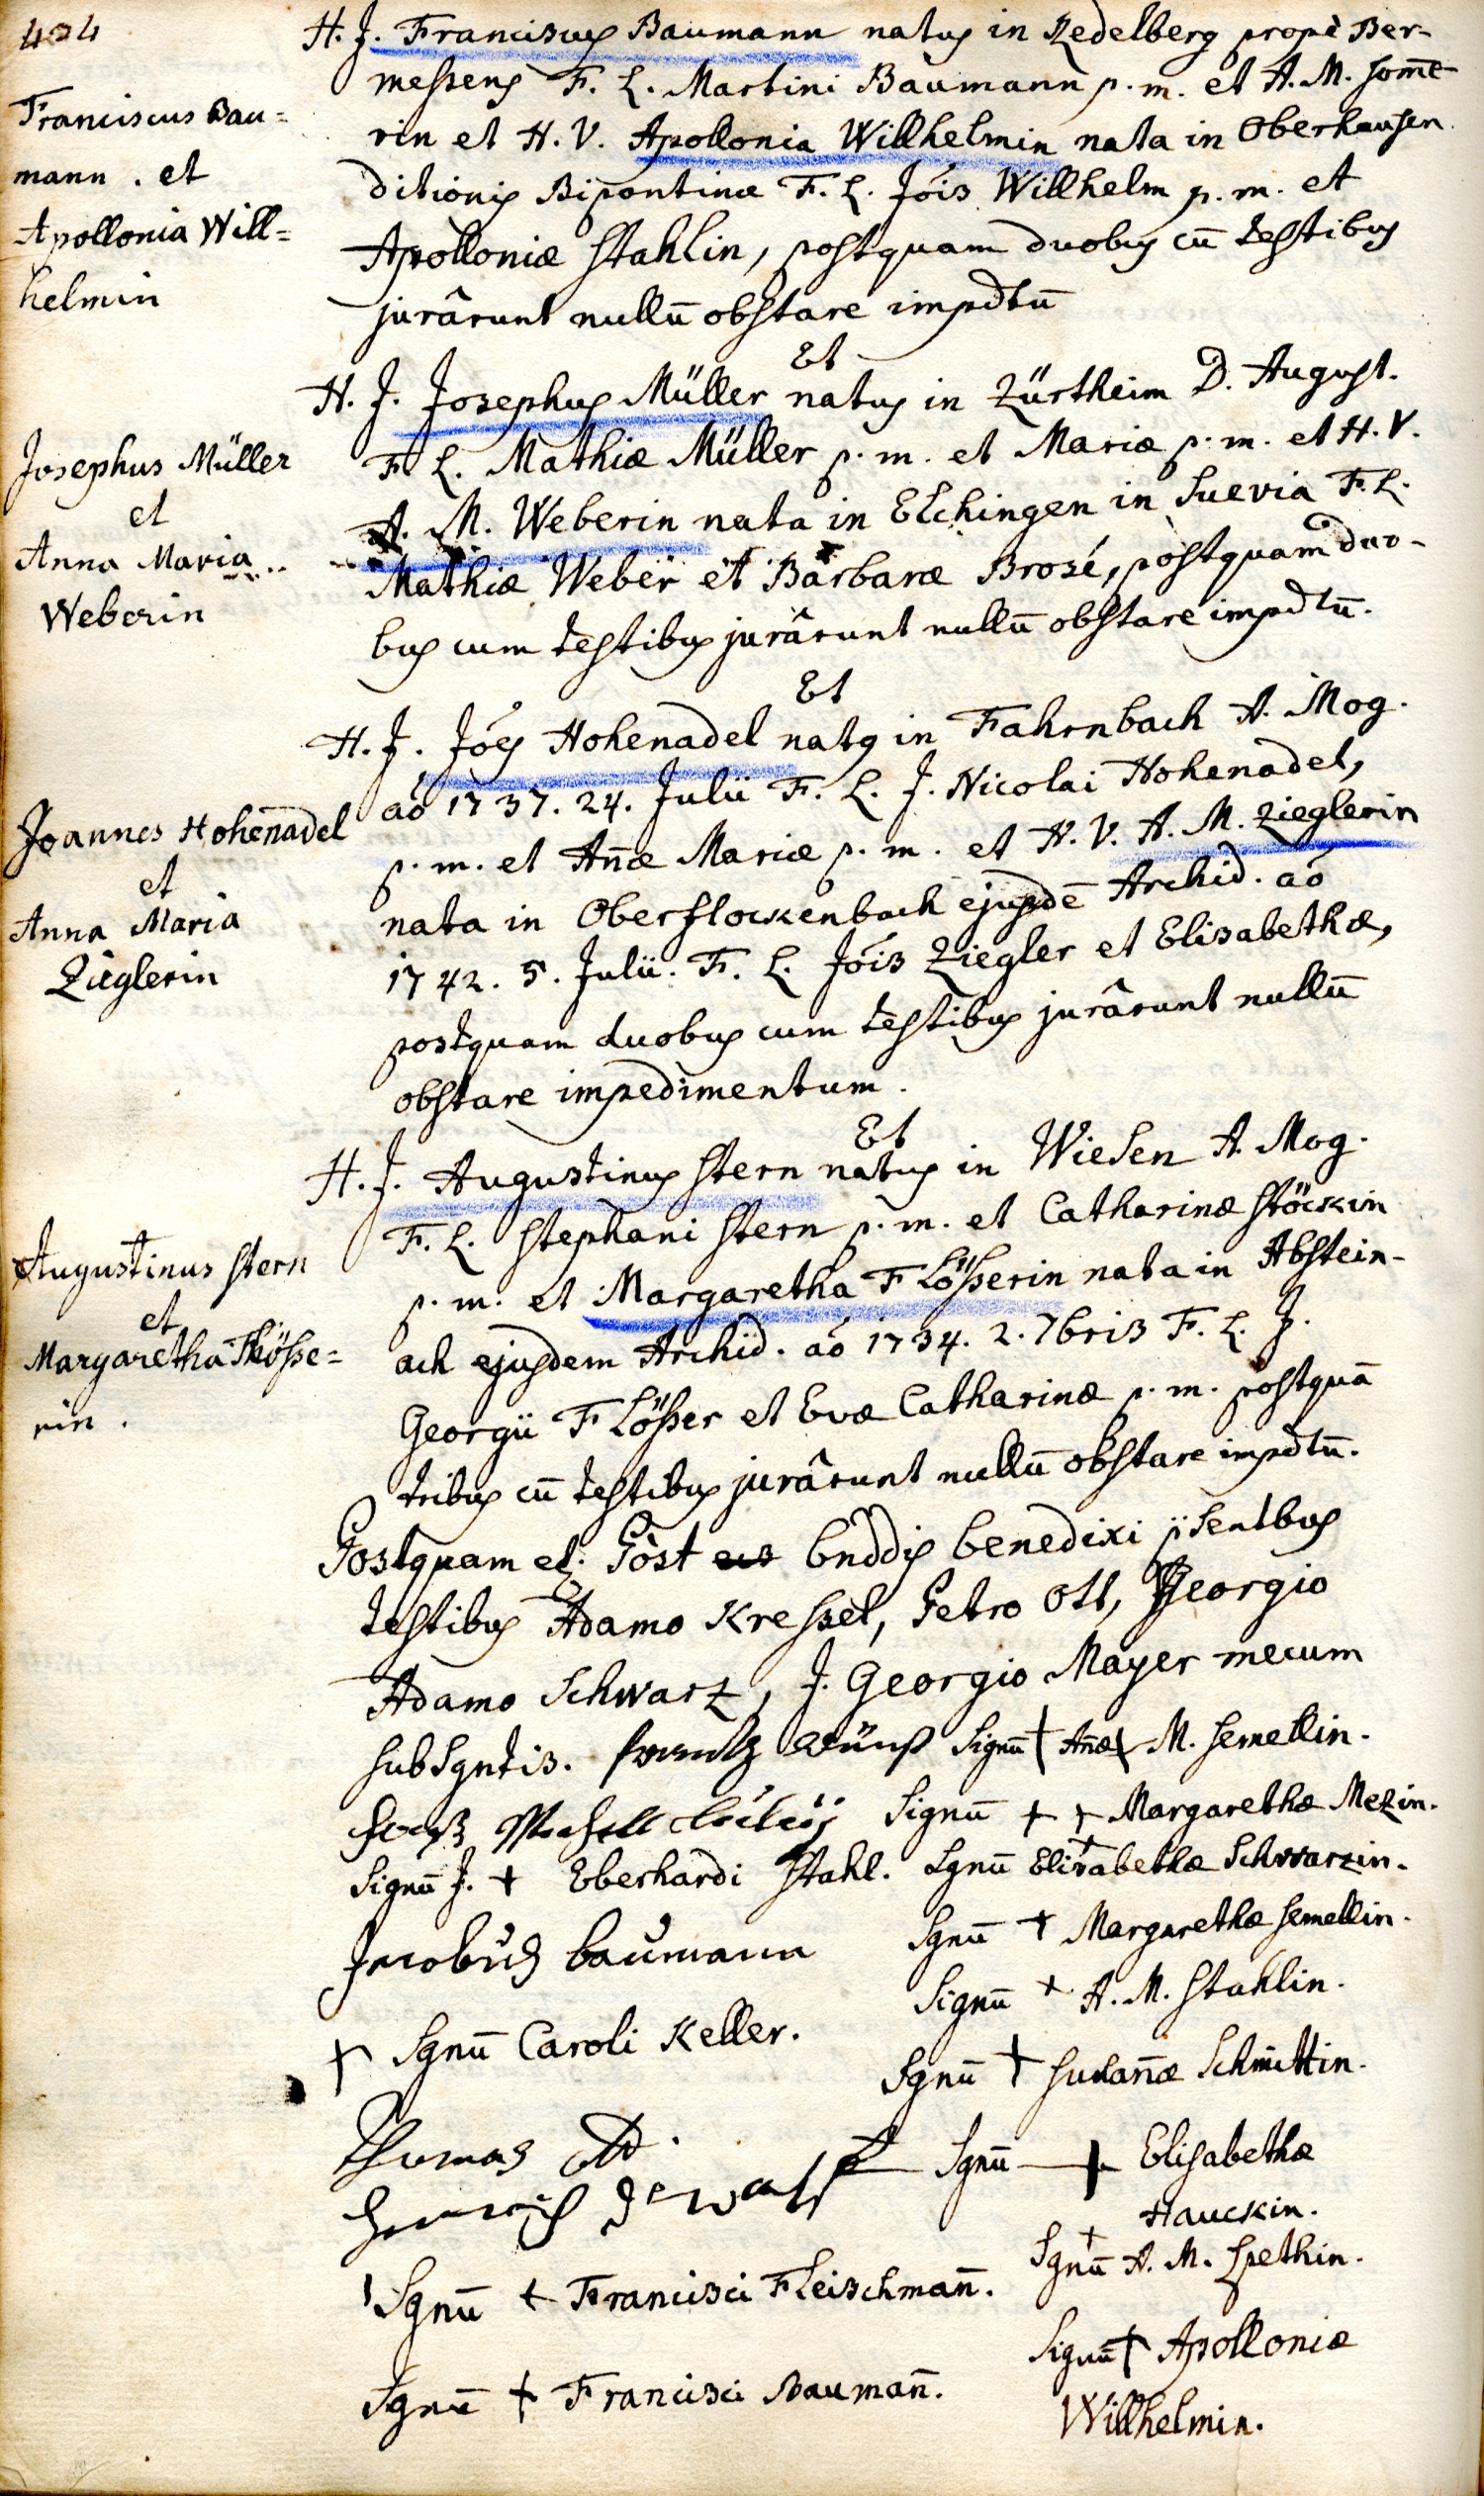 404
Franciscus Bau=
mann. et
Apollonia Will=
helmin
H. J. Franciscus Baumann natus in Zedelberg propè Ber-
messens F. L. Martini Baumann p. m. et A. M. Some-
rin et H. V. Apollonia Willhelmin nata in Oberhausen
ditionis Bipontinæ F. L. Jóis Willhelm p. m. et
Apolloniæ Stahlin, postquam duobus cū testibus
jurârunt nullū obstare impdtū
Et
Josephus Müller
et
Anna Maria
Weberin
H. J. Josephus Müller natus in Zürtheim D. August.
F. L. Mathiæ Müller p. m. et Mariæ p. m. et H. V.
A. M. Weberin nata in Elchingen in Suevia F. L.
Mathiæ Weber et Barbaræ Brosé, postquam duo-
bus cum testibus jurârunt nullū obstare impdtū.
Et
Joannes Hohenadel
et
Anna Maria
Zieglerin
H. J. Jóes Hohenadel natq in Fahrnbach A. Mog.
aó 1737. 24. Julii F. L. J. Nicolai Hohenadel,
p. m. et Añæ Mariæ p. m. et H. V. A. M. Zieglerin
nata in Oberflockenbach ejusdē Archid. aó
1742. 5. Julii. F. L. Jóis Ziegler et Elisabethæ,
postquam duobus cum testibus jurârunt nullū
obstare impedimentum.
Et
Augustinus Stern
et
Margaretha Flösse=
rin.
H. J. Augustinus Stern natus in Wiesen A. Mog.
F. L. Stephani Stern p. m. et Catharinæ Stöckin
p. m. et Margaretha Flösserin nata in Abstein-
ach ejusdem Archid. aó 1734. 2. 7bris F. L. J.
Georgii Flösser et Evæ Catharinæ p. m. postquā
tribus cū testibus jurârunt nullū obstare impdtū.
Postquam et Póst bnddis benedixi p̈sentbus
testibus Adamo Kressel, Petro Ott, Georgio
Adamo Schwarz, J. Georgio Mayer mecum
subsgntis. Signū + Añæ M. Semellin.
Signū + + Margarethæ Mezin.
Signū J. + Eberhardi Stahl. Sgnū Elisabethæ Schwarzin.
Jacobus baumann Sgnū + Margarethæ Semellin.
Signū + A. M. Stahlin.
+ Sgnū Caroli Keller.
Sgnū + Susañæ Schmittin.
Thomas Ott
Sgnū + Elisabethæ
Hauckin.
Sgnū A. M. Spethin.
Sgnū + Francisci Fleischmañ.
Signū + Apolloniæ
Willhelmin.
Sgnū + Francisci Baumañ.